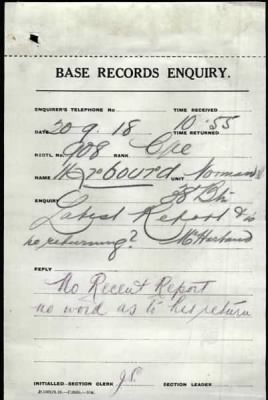 BASE RECORDS ENQUIRY.
ENQUIRER'S TELEPHONE No TIME RECEIVED
DATE 20.9.18 10.55
TIME RETURNED
REGTL. No. 908 RANK Cpl
NAME Harbourd UNIT Norman
38 Bn
ENQUIRY Latest Report & is
he returning? Mr Harbourd
REPLY
No Recent Report
no word as to his return
INITIALLED—SECTION CLERK J.S. SECTION LEADER